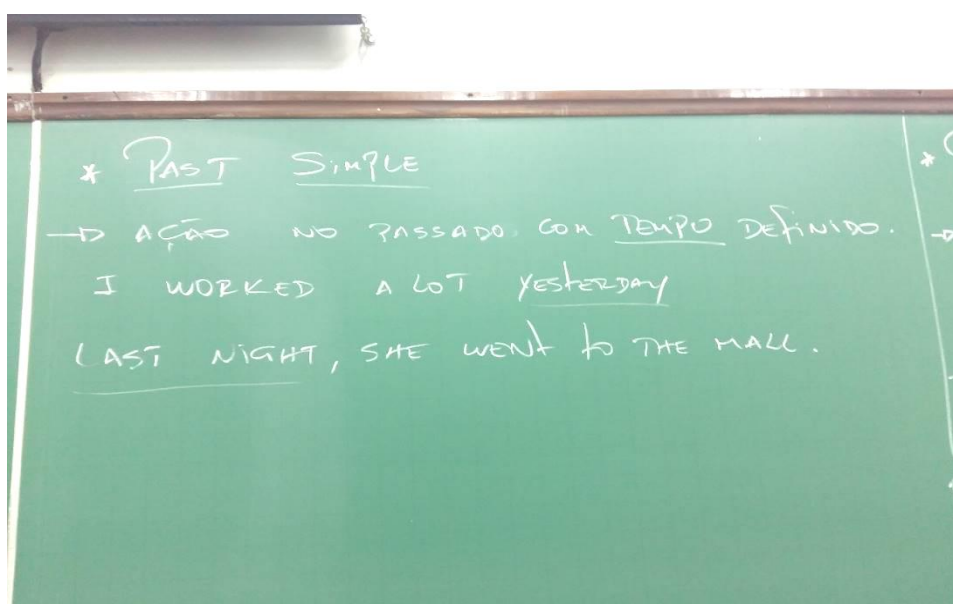 * PAST SIMPLE
→ AÇÃO NO PASSADO COM TEMPO DEFINIDO.
I WORKED A LOT YESTERDAY
LAST NIGHT, SHE WENT TO THE MALL.